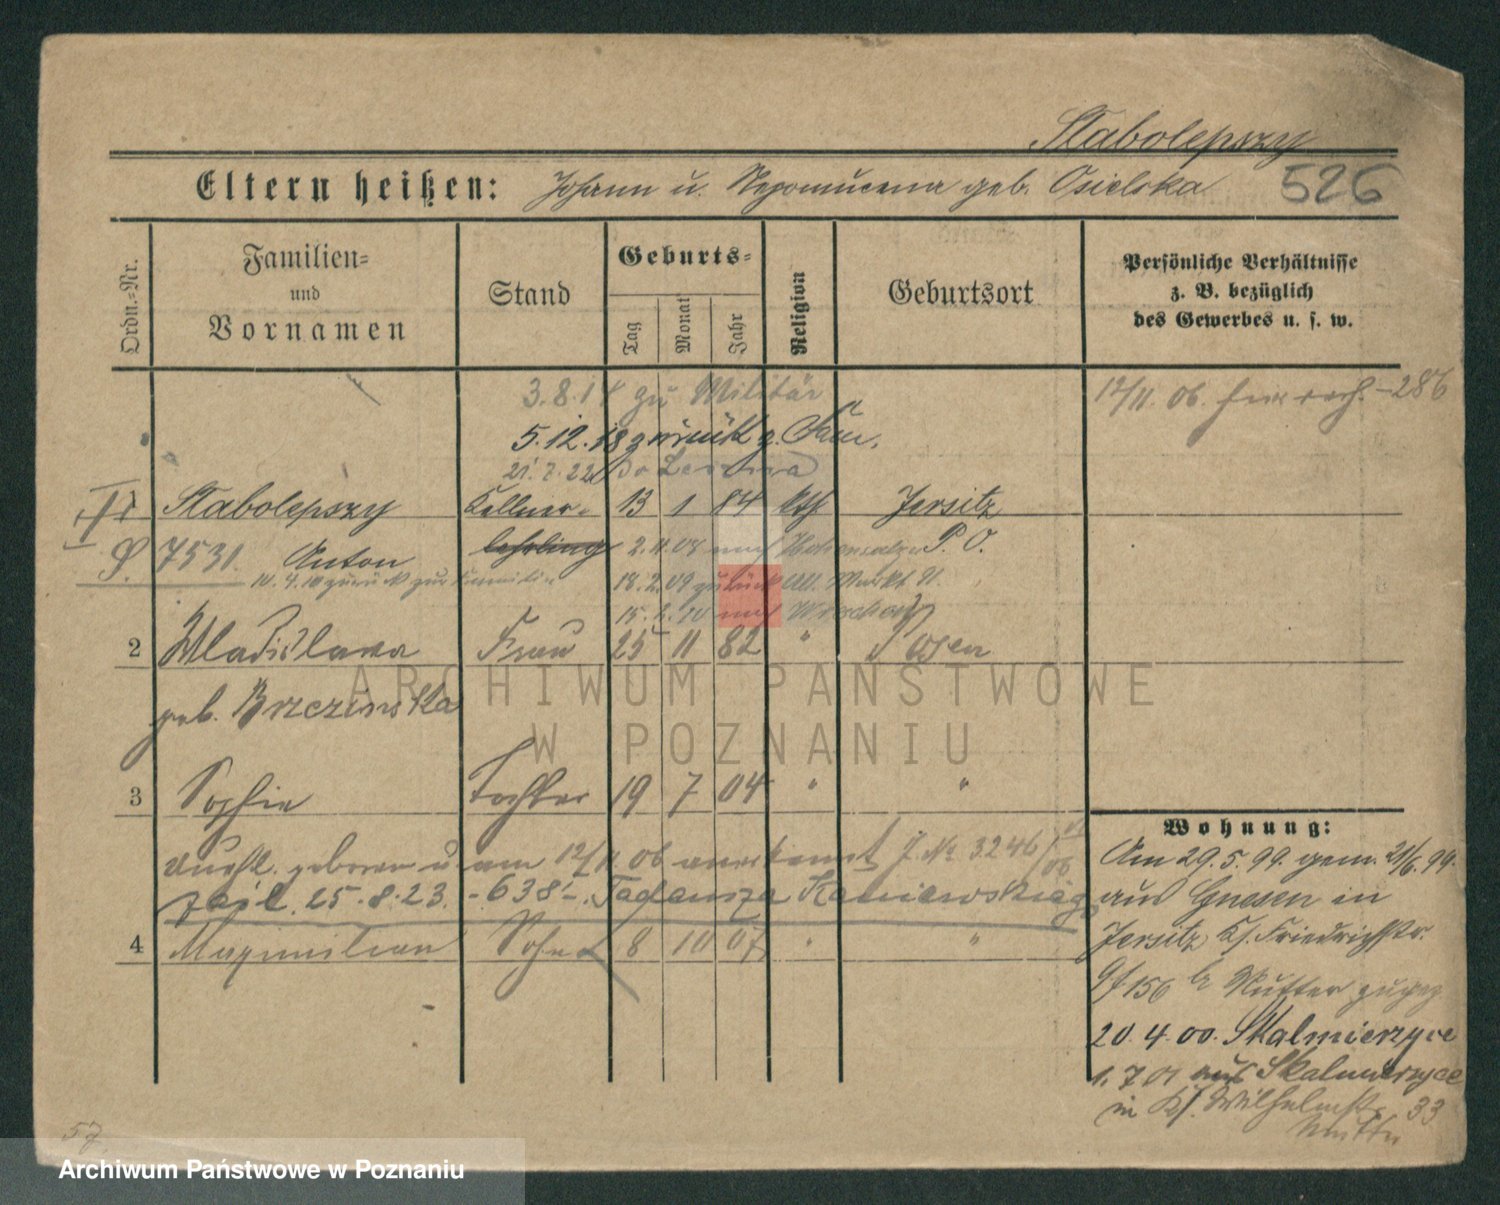 Slabolepszy
Eltern heißen: Johann u. Nepomucena geb. Osielska 526
Ordn.=Nr.
Familien=
und
Vornamen
Stand
Geburts=
Tag
Monat
Jahr
Religion
Geburtsort
Persönliche Verhältnisse
z. B. bezüglich
des Gewerbes u. s. w.
3.8.14 zu Militär
12/11. 06. -286
5.12.18 zurück z. Fam.
21.7.22 do
Slabolepszy Kellner- 13 1 84 kth Jersitz
S. 7531. Anton lehrling 2.11.08 nach Hohensalza P. O.
10.4.10 zurück zur Familie 18.2.09 zurück Alt. Markt
15.2.10 nach Wreschen
2 Wladislawa Frau 25 11 82 " Posen
geb. Brzezinska
3 Sophie Tochter 19 7 04 " "
geboren u am 12/11 06 anerkannt J. No 3246/06
25.8.23. -638-. Tadeusza
4 Maximilian Sohn 8 10 07 " "
Wohnung:
Am 29.5.99. gem. 21/6.99.
aus Gnesen in
Jersitz, Ks. Friedrichstr.
b Mutter zugez
20.4.00. Skalmierzyce
1.7.01 aus Skalmierzyce
in Ks. Wilhelmstr. 33
Mutter
57
ARCHIWUM PAŃSTWOWE
W POZNANIU
Archiwum Państwowe w Poznaniu